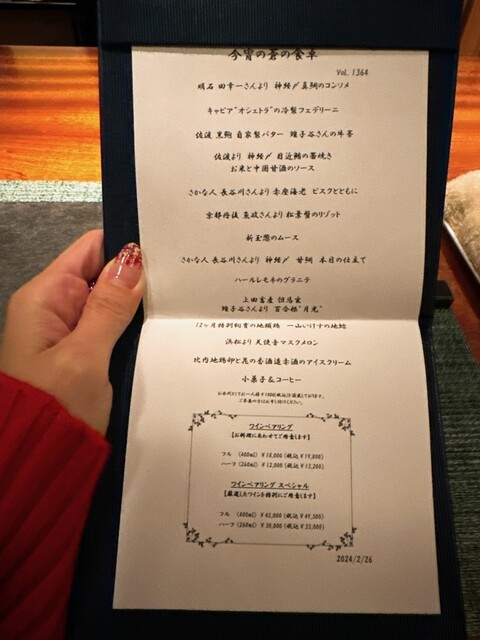 今宵の蒼の食卓
Vol. 1364
明石 田幸一さんより 神経〆真鯛のコンソメ
キャビア"オシェトラ"の冷製フェデリーニ
佐渡 黒鮑 自家製バター 蹱子谷さんの牛蒡
佐渡より 神経〆 目近鮪の藁焼き
お米と中国甘酒のソース
さかな人 長谷川さんより 赤座海老 ビスクとともに
京都丹後 魚政さんより 松葉蟹のリゾット
新玉葱のムース
さかな人 長谷川さんより 神経〆 甘鯛 本日の仕立て
ハールレモネのグラニテ
上田畜産 但馬玄
子谷さんより 百合根"月光"
12ヶ月特別飼育の地頭鶏 一山いけすの地鯰
浜松より 天使音マスクメロン
比内地鶏卵と花の香酒造赤酒のアイスクリーム
小菓子&コーヒー
ワインペアリング
【お料理にあわせてご用意します】
フル (400ml) ¥18,000(税込¥19,800)
ハーフ(260ml) ¥12,000(税込¥13,200)
ワインペアリング スペシャル
【厳選したワインを特別にご用意します】
フル (400ml) ¥45,000(税込¥49,500)
ハーフ(260ml) ¥30,000(税込¥33,000)
2024/2/26